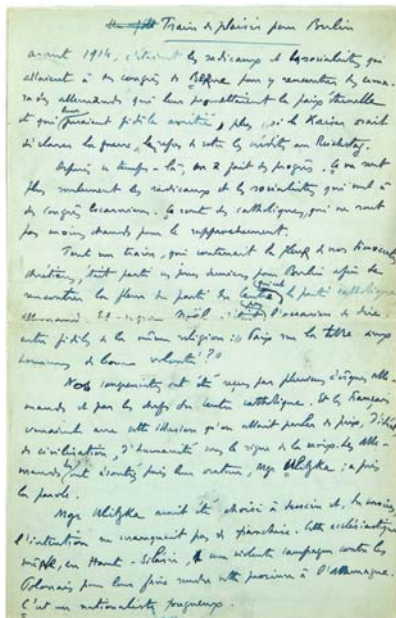 Train de plaisir pour Berlin
avant 1914, c'étaient les radicaux et les socialistes qui
allaient à des congrès de Berne pour y rencontrer des cama-
rades allemands qui leur promettaient la paix éternelle
et qui leur juraient fidèle amitié, plus, si le Kaiser osait
déclarer la guerre, le refus de voter les crédits au Reichstag.
Depuis ce temps-là, on a fait des progrès. Ce ne sont
plus seulement les radicaux et les socialistes qui vont à
des congrès locarniens. Ce sont des catholiques, qui ne sont
pas moins chauds pour le rapprochement.
Tout un train, qui contenait la fleur de nos démocrates
chrétiens, était parti ces jours derniers pour Berlin afin de
rencontrer la fleur du parti du centre qui est le parti catholique
allemand. Noël l'occasion de dire
entre fidèles de la même religion : « Paix sur la terre aux
hommes de bonne volonté » ?
Nos congressistes ont été reçus par plusieurs évêques alle-
mands et par les chefs du centre catholique. Et les Français
venaient avec cette illusion qu'on allait parler de paix,
de civilisation, d'humanité sous le signe de la croix. Les Alle-
mands les ont écoutés puis leur orateur, Mgr Ulitzka, a pris
la parole.
Mgr Ulitzka avait été choisi à dessein et, du moins,
l'intention ne manquait pas de franchise. Cet ecclésiastique
mène, en Haute-Silésie, une violente campagne contre les
Polonais pour leur faire rendre cette province à l'Allemagne.
C'est un nationaliste fougueux.